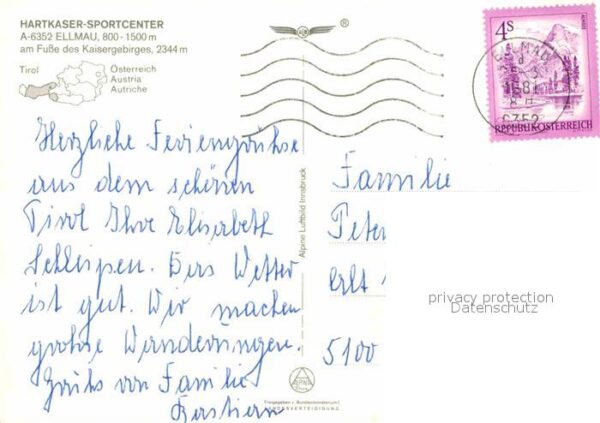 HARTKASER-SPORTCENTER
A-6352 ELLMAU, 800 - 1500 m
am Fuße des Kaisergebirges, 2344 m
Tirol
Österreich
Austria
Autriche
®
4s
REPUBLIK ÖSTERREICH
ELLMAU
6352
Herzliche Feriengrühse
aus dem schönen
Tirol Ihre Elisabeth
Schleipen. Das Wetter
ist gut. Wir machen
grohse Wanderungen.
Gruhs von Familie
Alpine Luftbild Innsbruck
Familie
Peter
5100
privacy protection
Datenschutz
Freigegeben v. Bundesministerium f.
LANDESVERTEIDIGUNG